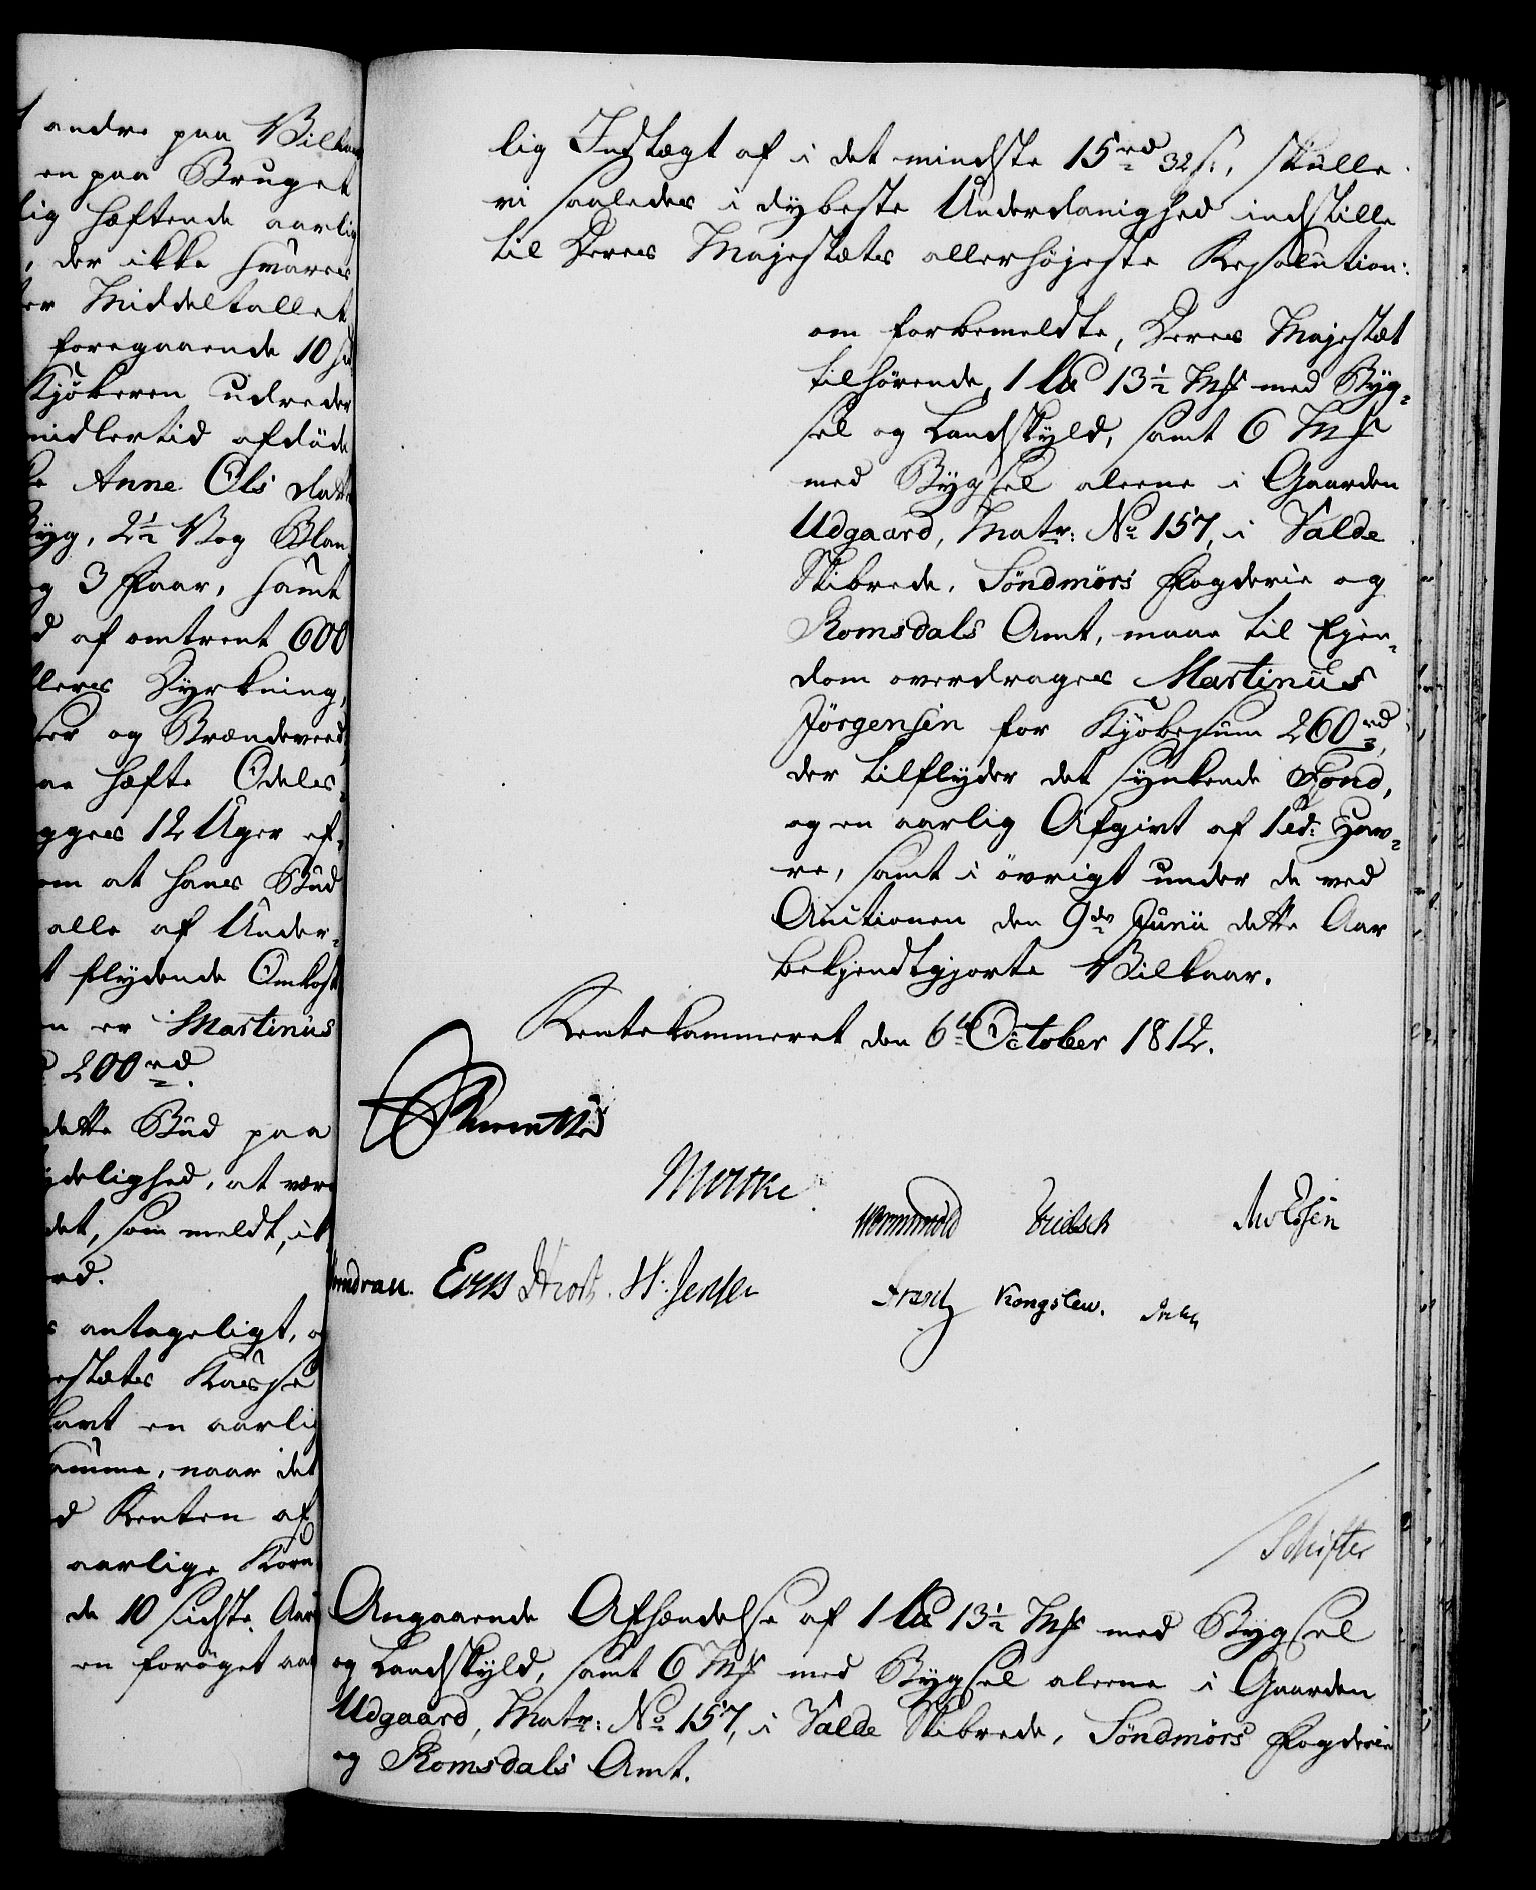 andre paa Vilkaar
en paa Bruget
lig hæftende aarlig
, der ikke svares
er Middeltallet
foregaaende 10
Kjöberen udreder
midlertid afdöde
Anne Ols datter
Byg, 2½ Vog Blan
g 3 Faar, samt
d af omtrent 600
lleres Dyrkning,
og Brændeveed,
hæfte Odels-
gges 12 Uger ef-
om at hans Bud
alle af Under-
t flydende Omkost
n er Martinus
200 rd.
dette Bud paa
delighed, at være
det, som meldt, ik
rd.
antageligt, o
estæts Kasse
en aarlig
amme, naar det
d Renten af
aarlige Korn
de 10 sidste Aar
en forøget aar
lig Indtægt af i det mindste 15 rd 32 s., skulle
vi saaledes i dybeste Underdanighed indstille
til Deres Majestæts allerhöjeste Resolution:
om forbemeldte, Deres Majestæt
tilhörende, 1 Lb 13½ Mk med Byg-
sel og Landskyld, samt 6 Mk
med Bygsel alene i Gaarden
Udgaard, Matr: No 157, i Valde
Skibrede, Söndmörs Fogderie og
Romsdals Amt, maae til Ejen-
dom overdrages Martinus
Jörgensen for Kjöbesum 260 rd,
der tilflyder det synkende Fond,
og en aarlig Afgivt af 1 Td: Hav-
re, samt i övrigt under de ved
Auctionen den 9de Junii dette Aar
bekjendtgjorte Vilkaar.
Rentekammeret den 6te October 1812.
Moltke
Wormskiold
Kongslew.
Schifter
Angaaende Afhændelse af 1 Lb 13½ Mk med Bygsel
og Landskyld, samt 6 Mk med Bygsel alene i Gaarden
Udgaard, Matr: No 157, i Valde Skibrede, Söndmörs Fogderie
og Romsdals Amt.